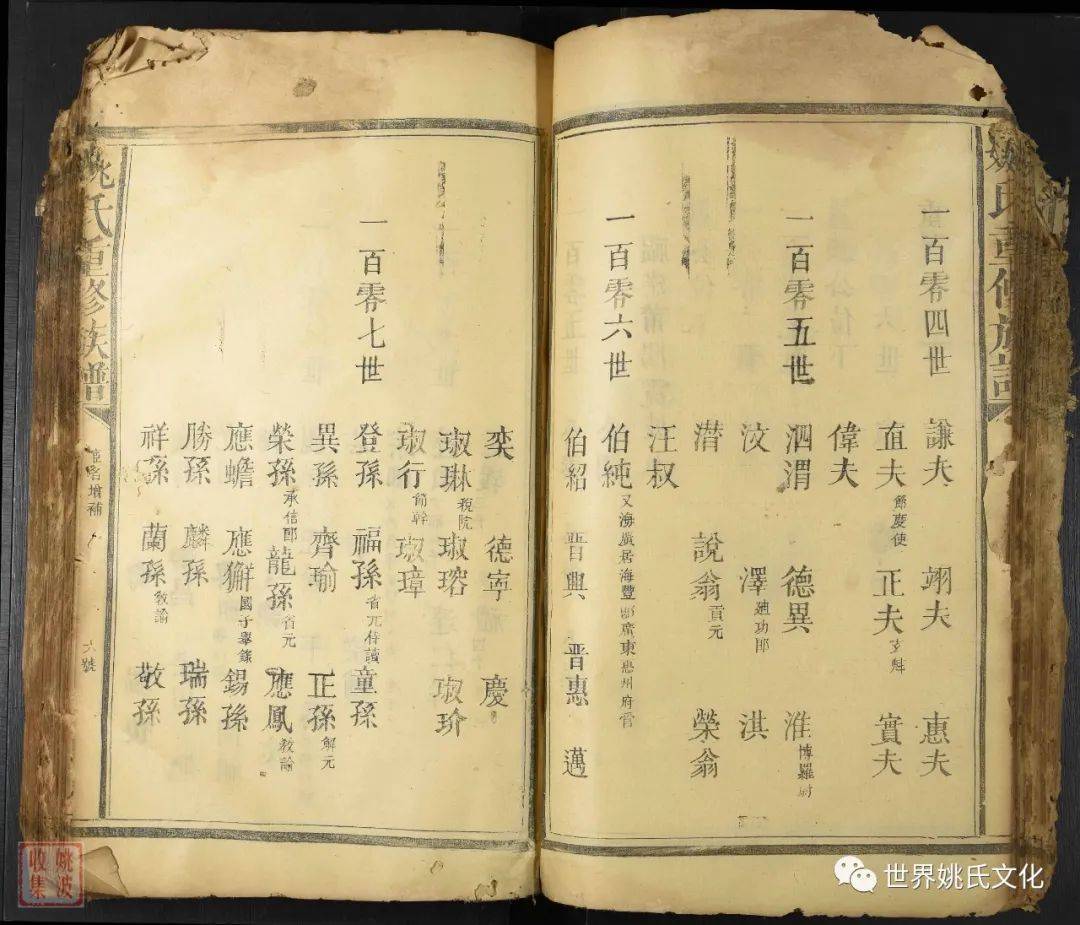 姚氏重修族譜
一百零四世
謙夫 翊夫 惠夫
直夫 節慶使 正夫 玄魁 實夫
偉夫
一百零五世
泗渭 德異 淮 博羅尉
汶 澤 迪功郎 洪
潜 說翁 貢元 榮翁
汪叔
一百零六世
伯純 又海廣居海豐即廣東惠州府官
伯紹 晋興 晋惠 邁
奕 德寧 慶
琡琳 税院 琡瑢 琡玠
琡行 琡璋
一百零七世
登孫 福孫 省元侍讀 童孫
異孫 齊瑜 正孫 解元
榮孫 承信郎 龍孫 省元 應鳳 教諭
應蟾 應獬 國子舉 錫孫
勝孫 麟孫 瑞孫
祥孫 蘭孫 教諭 敬孫
姚氏重修族譜
增補
六號
姚波收集
世界姚氏文化